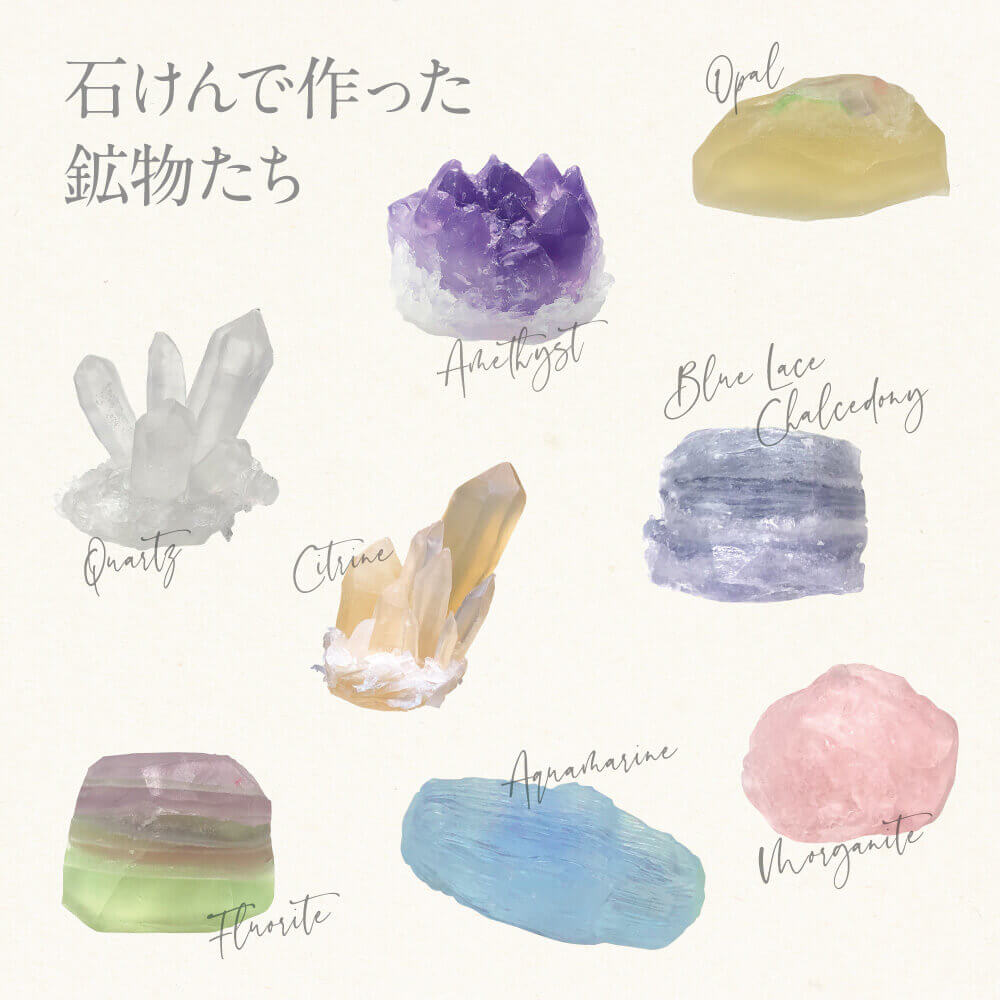 石けんで作った
鉱物たち
Opal
Amethyst
Blue Lace
Chalcedony
Quartz
Citrine
Aquamarine
Morganite
Fluorite